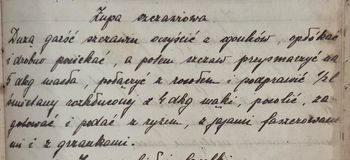 Zupa szczawiowa
Dużą garść szczawiu oczyścić z ogonków, opłókać
i drobno posiekać, a potem szczaw przysmażyć na
5 dkg masła, połączyć z rosołem i podprawić 1/2 l
śmietany rozkłóconej z 4 dkg mąki, posolić, za
gotować i podać z ryżem, z jajami faszerowane
mi i z grzankami.